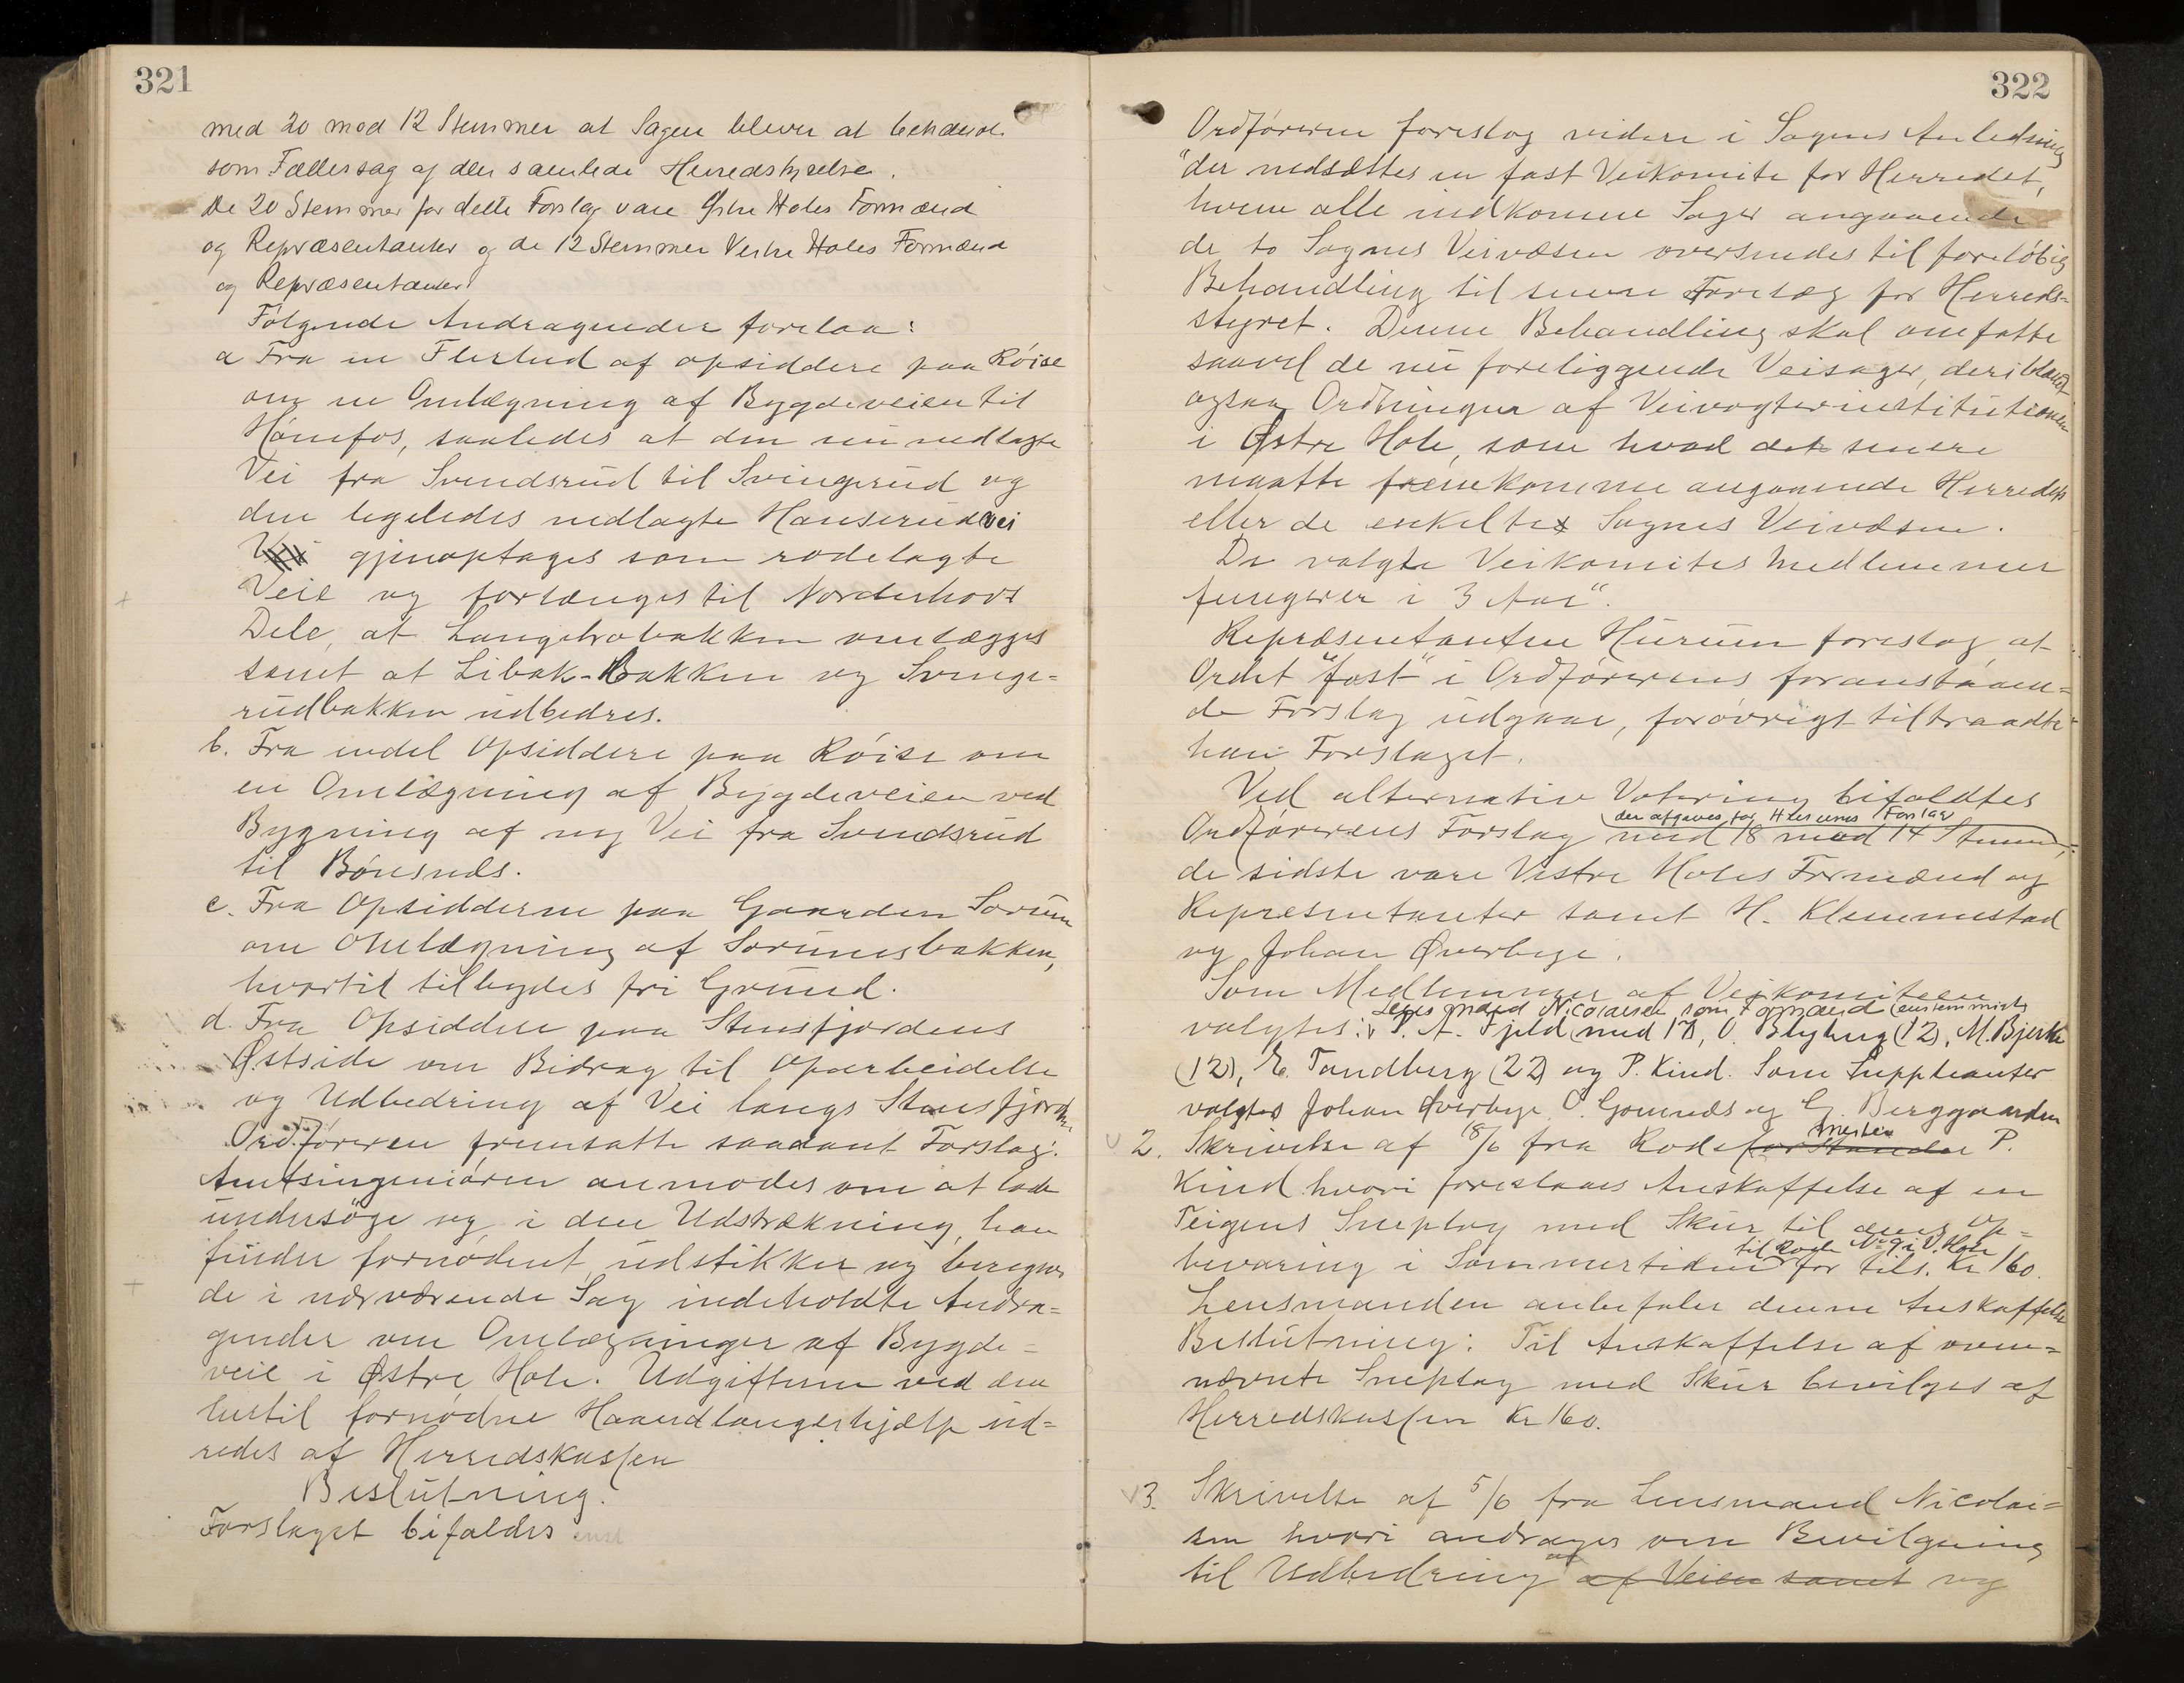 321
med 20 mod 12 Stemmer at Sagen bliver at behandle
som Fællessag af den samlede Herredstyrelse.
De 20 Stemmer for dette Forslag vare Østre Holes Formænd
og Repræsentanter og de 12 Stemmer Vestre Holes Formænd
og Repræsentanter.
Følgende Andragender forelaa:
a Fra en Flerhed af opsiddere paa Røise
om en Omlægning af Bygdeveien til
Hønefos, saaledes at den nu nedlagte
Vei fra Svendsrud til Svingerud og
den ligeledes nedlagte Hanserudvei
gjenoptages som rodelagte
Veie og forlænges til Norderhovs
Dele, at Langebrobakken omlægges
samt at Libak-Bakken og Svinge=
rudbakken udbedres.
b. Fra endel Opsiddere paa Røise om
en Omlægning af Bygdeveien ved
Bygning af ny Vei fra Svendsrud
til Bønsnæs.
c. Fra Opsidderne paa Gaarden Sørum
om Omlægning af Sørumsbakken,
hvortil tilbydes fri Grund.
d. Fra Opsiddere paa Stensfjordens
Østside om Bidrag til Oparbeidelse
og Udbedring af Vei langs Stensfjorden.
Ordføreren fremsatte saadant Forslag:
Amtsingeniøren anmodes om at lade
undersøge og, i den Udstrækning, han
finder fornødent, udstikker og beregner
de i nærværende Sag indeholdte Andra=
gender om Omlægninger af Bygde=
veie i Østre Hole. Udgifterne ved den
hertil fornødne Haandlangerhjælp ud=
redes af Herredskassen
Beslutning.
Forslaget bifaldes enst
322
Ordføreren foreslog videre i Sagens Anledning
"der nedsættes en fast Veikomite for Herredet,
hvem alle indkomne Sager angaaende
de to Sognes Veivæsen oversendes til foreløbig
Behandling til senere Forelæg for Herreds=
styret. Denne Behandling skal omfatte
saavel de nu foreliggende Veisager, deriblandt
ogsaa Ordningen af Veivogterinstitutionen
i Østre Hole, som hvad det senere
maatte fremkomme angaaende Herredets
eller de enkelte Sognes Veivæsen.
De valgte Veikomites Medlemmer
fungerer i 3 Aar".
Repræsentanten Hurum foreslog, at
Ordet "fast" i Ordførerens foranstaaen=
de Forslag udgaar, forøvrigt tiltraadte
han Forslaget.
Ved alternativ Votering bifaldtes
der afgaves for Hurums Forslag
Ordførerens Forslag med 18 mod 14 Stemmer,
de sidste vare Vestre Holes Formænd og
Repræsentanter samt H. Klemmestad
og Johan Øverbye.
Som Medlemmer af Veikomiteen
Lensmand Nicolaisen som Formand (enstemmigt)
valgtes: P. A. Fjeld (med 17), O. Blyberg (12), M. Bjerke
(12), E. Tandberg (22) og P. Kind. Som Suppleanter
valgtes Johan Øverbye, O. Gomnæs og G. Berggaarden
2. Skrivelse af 8/6 fra Rodeforstander mester P.
Kind hvori foreslaaes Anskaffelse af en
Teigens Sneplog med Skur til dens Op=
til Rode No 9 i V. Hole
bevaring i Sommertiden for tils. Kr 160.
Lensmanden anbefaler denne Anskaffelse
Beslutning: Til Anskaffelse af oven=
nævnte Sneplog med Skur bevilges af
Herredskassen Kr 160.
3. Skrivelse af 5/6 fra Lensmand Nicolai=
sen hvori andrages om Bevilgning
til Udbedring af af Veien samt og